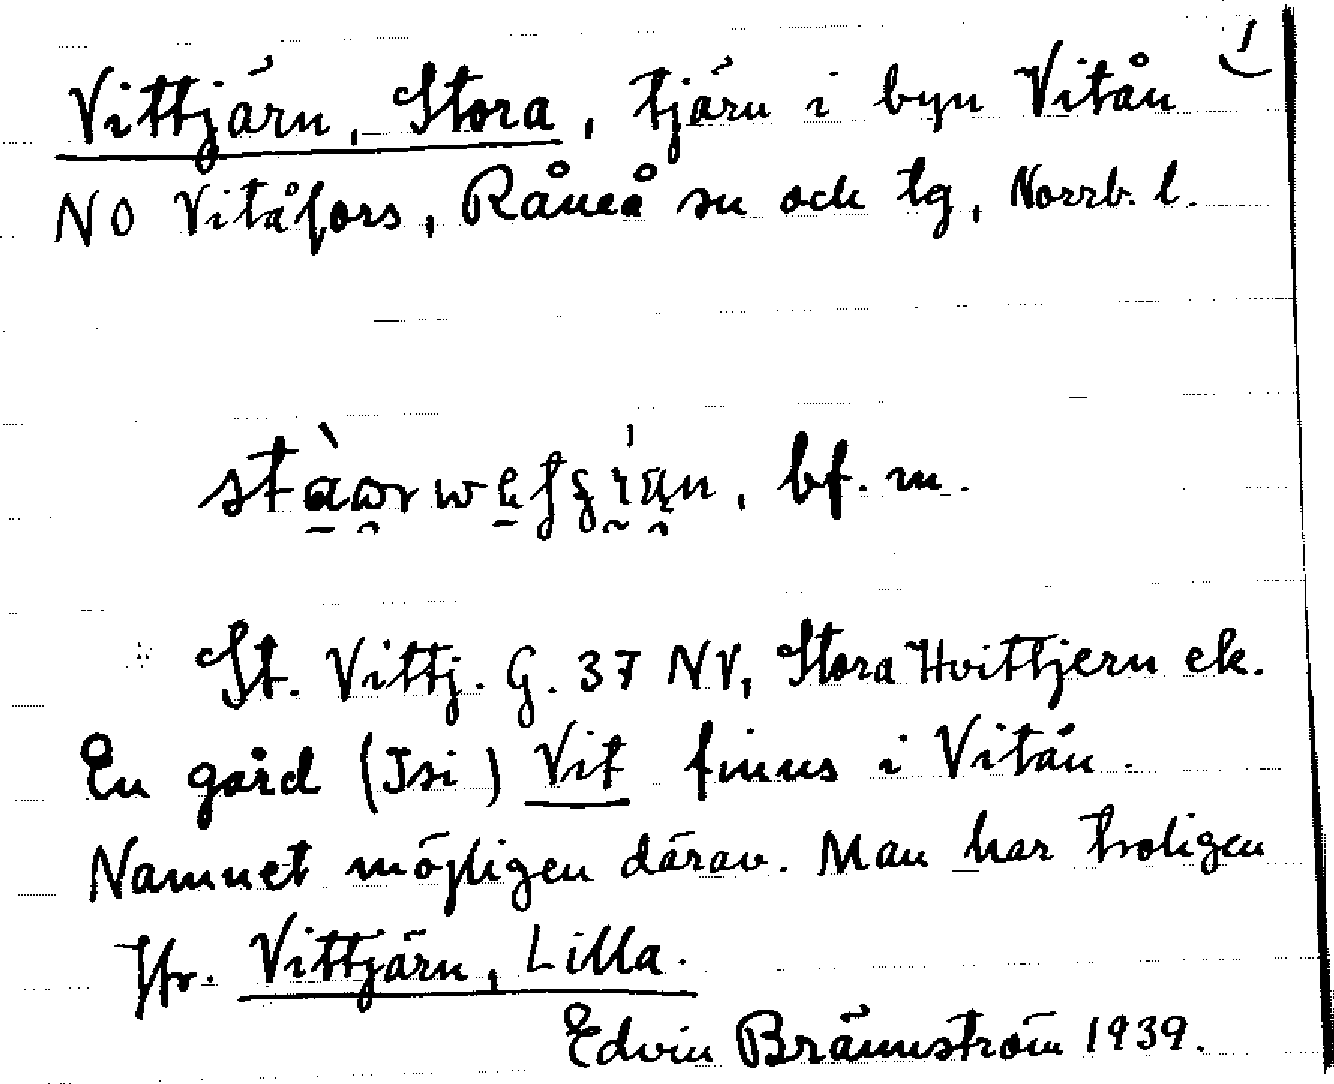 1
Vittjärn, Stora, tjärn i byn Vitån
NO Vitåfors, Råneå sn och tg, Norrb. l.
bf. m.
St. Vittj. G. 37 NV, Stora Hvittjern ek.
En gård (Isi) Vit finns i Vitån.
Namnet möjligen därav. Man har troligen
Jfr. Vittjärn, Lilla.
Edvin Brännström 1939.